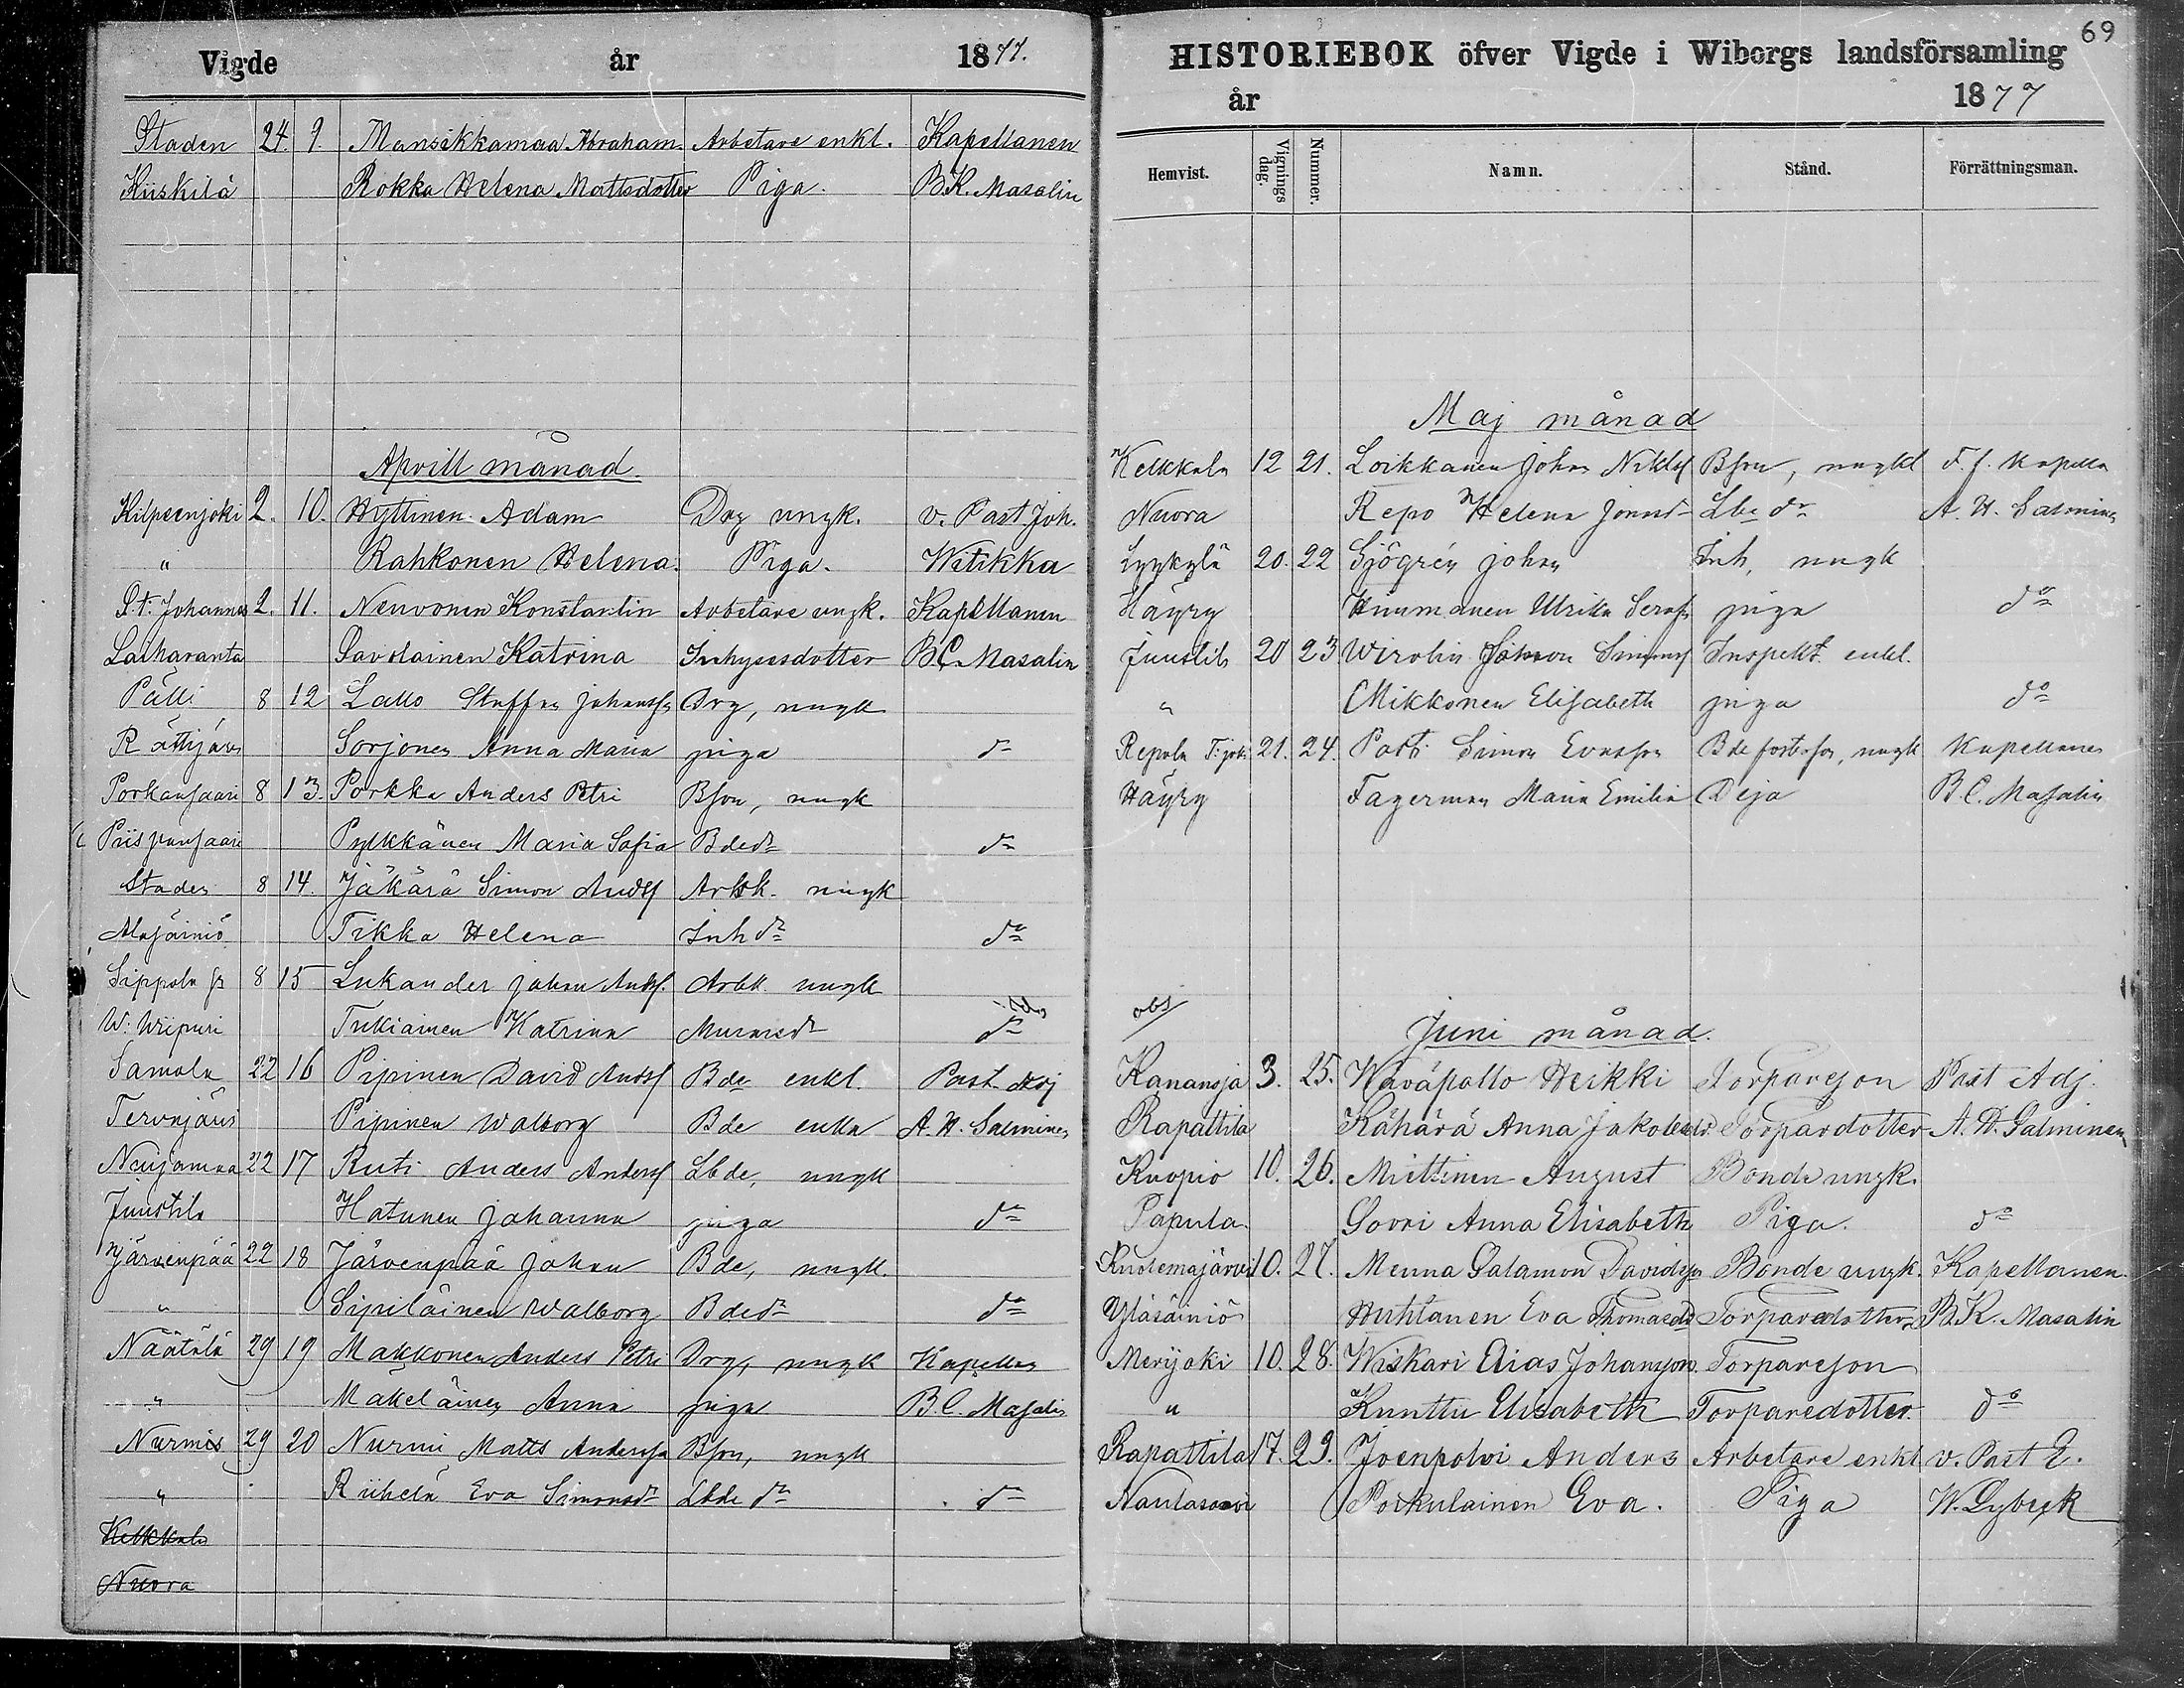 Vigde år 1877.
Staden 24. 9. Mansikkamaa Abraham. Arbetare enkl. Kapellanen
Kiiskilä Rokka Helena Mattsdotter Piga. B.K. Masalin
Aprill månad.
Kilpeenjoki 2. 10. Hyttinen Adam Drg ungk. v. Past. Joh.
" Rahkonen Helena. Piga. Witikka
St. Johannes 2. 11. Neuvonen Konstantin Arbetare ungk. Kapellanen
Laiharanta Savolainen Katrina Inhysesdotter B.C. Masalin
Pälli 8 12 Lallo Staffan Johanss Drg, ungk
Rättijärvi Sorjonen Anna Maria piga do
Porkansaari 8 13. Porkka Anders Petri Bson, ungk
Piispansaari Pylkkänen Maria Sofia Bdedr do
Staden 8 14. Jäkärä Simon Andss Arbk. ungk
Alasäiniö Tikka Helena Inhdr do
Sippola 8 15 Lukander Johan Andss. Arbk. ungk
W: Wiipuri Tukiainen Katrina Muraresdr do
Samola 22 16 Pipinen David Andss Bde enkl. Past. Adj
Tervajärvi Pipinen Walborg Bde enka A. H. Salminen
Nuijamaa 22 17 Ruti Anders Anderss Lbde, ungk
Juustila Hatunen Johanna piga do
Järvenpää 22 18 Järvenpää Johan Bde, ungk.
" Sipiläinen Walborg Bdedr do
Näätälä 29 19 Makkonen Anders Petri Drg, ungk Kapellan
" Mäkeläinen Anna piga B.C. Masalin
Nurmis 29 20 Nurmi Matts Andersson Bson, ungk
" Riihelä Eva Simonsdr Lbde dr do
Kelkkala
Nuora
69
HISTORIEBOK öfver Vigde i Wiborgs landsförsamling
år 1877
Hemvist. Vignings dag. Nummer. Namn. Stånd. Förrättningsman.
Maj månad
Kelkkala 12 21. Loikkanen Johan Niklss Bson, ungkl
Nuora Repo Helena Lbe dr A. H. Salminen
Lyykylä 20. 22 Sjögrén Johan Inh, ungk
Häyry Hinmanen Ulrika piga do
Juustila 20 23 Wirolin Simonss Inspekt. enkl.
" Mikkonen Elisabeth piga do
Repola T:joki 21. 24. Posti Simon Evasson Bde fosterson, ungk Kapellanen
Häyry Fagerman Maria Emilia Deja B. C. Masalin
obs
Juni månad.
Kananoja 3. 25. Heikki Torpareson Past Adj.
Rapattila Kähärä Anna Jakobsdr. Torpardotter A. H. Salminen
Kuopio 10. 26. Miettinen August Bonde ungk.
Papula. Sovri Anna Elisabeth Piga. do
Kuolemajärvi 10. 27. Menna Salamon Davidsson Bonde ungk. Kapellanen.
Yläsäiniö Huhtanen Eva Thomasdr Torparedotter B.K. Masalin
Merijoki 10. 28. Wiskari Elias Johansson. Torpareson
" Kunttu Elisabeth Torparedotter. do
Rapattila 17. 29. Joenpolvi Anders Arbetare enkl v. Past E.
Naulasaari Poikulainen Eva. Piga W. Dybeck